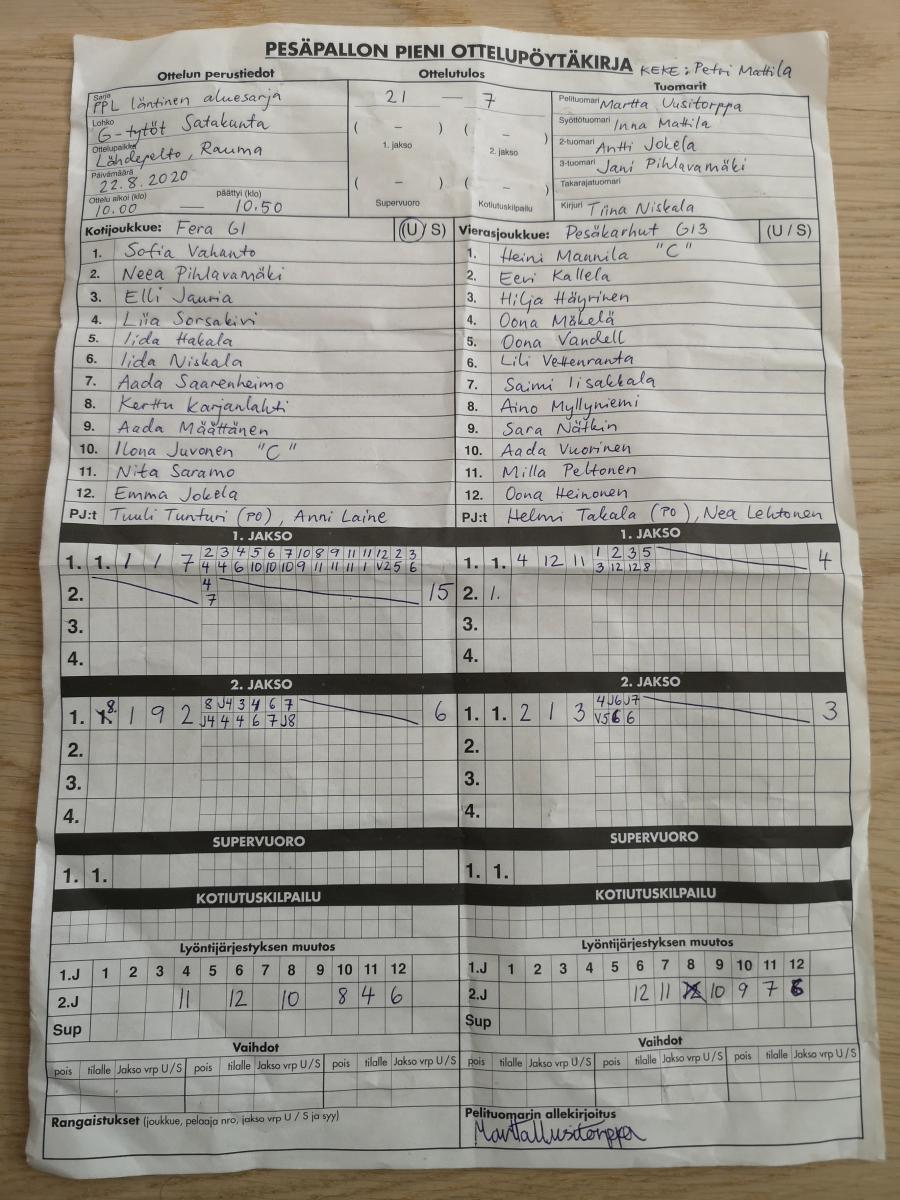 PESÄPALLON PIENI OTTELUPÖYTÄKIRJA KEKE: Petri Mattila
Ottelun perustiedot Ottelutulos Tuomarit
Sarja PPL läntinen aluesarja
Lohko G-tytöt Satakunta
Ottelupaikka Lähdepelto, Rauma
Päivämäärä 22.8.2020
Ottelu alkoi (klo) päättyi (klo)
10.00 — 10.50
21 — 7
( – ) ( – )
1. jakso 2. jakso
( – ) ( – )
Supervuoro Kotiutuskilpailu
Pelituomari Martta Uusitorppa
Syöttötuomari Inna Mattila
2-tuomari Antti Jokela
3-tuomari Jani Pihlavamäki
Takarajatuomari
Kirjuri Tiina Niskala
Kotijoukkue: Fera G1 (U / S)
1. Sofia Vahanto
2. Neea Pihlavamäki
3. Elli Jauria
4. Liia Sorsakivi
5. Iida Hakala
6. Iida Niskala
7. Aada Saarenheimo
8. Kerttu Karjanlahti
9. Aada Määttänen
10. Ilona Juvonen "C"
11. Nita Saramo
12. Emma Jokela
PJ:t Tuuli Tunturi (PO), Anni Laine
Vierasjoukkue: Pesäkarhut G13 (U / S)
1. Heini Mannila "C"
2. Eevi Kallela
3. Hilja Häyrinen
4. Oona Mäkelä
5. Oona Vandell
6. Lili Vettenranta
7. Saimi Iisakkala
8. Aino Myllyniemi
9. Sara Nätkin
10. Aada Vuorinen
11. Milla Peltonen
12. Oona Heinonen
PJ:t Helmi Takala (PO), Nea Lehtonen
1. JAKSO
1. 1. 1 1 7 2 3 4 5 6 7 10 8 9 11 11 12 2 3
4 4 6 10 10 10 9 11 11 11 1 V2 5 6
2. 4 15
7
3.
4.
1. JAKSO
1. 1. 4 12 11 1 2 3 5 4
3 12 12 8
2. 1.
3.
4.
2. JAKSO
1. 8. 1 9 2 8 J4 3 4 6 7 6
J4 4 4 6 7 J8
2.
3.
4.
2. JAKSO
1. 1. 2 1 3 4 J6 J7 3
V5 6 6
2.
3.
4.
SUPERVUORO
1. 1.
SUPERVUORO
1. 1.
KOTIUTUSKILPAILU
KOTIUTUSKILPAILU
Lyöntijärjestyksen muutos
1.J 1 2 3 4 5 6 7 8 9 10 11 12
2.J 11 12 10 8 4 6
Sup
Lyöntijärjestyksen muutos
1.J 1 2 3 4 5 6 7 8 9 10 11 12
2.J 12 11 10 9 7 6
Sup
Vaihdot
pois tilalle Jakso vrp U / S pois tilalle Jakso vrp U / S pois tilalle Jakso vrp U / S
Vaihdot
pois tilalle Jakso vrp U / S pois tilalle Jakso vrp U / S pois tilalle Jakso vrp U / S
Rangaistukset (joukkue, pelaaja nro, jakso vrp U / S ja syy)
Pelituomarin allekirjoitus
Martta Uusitorppa